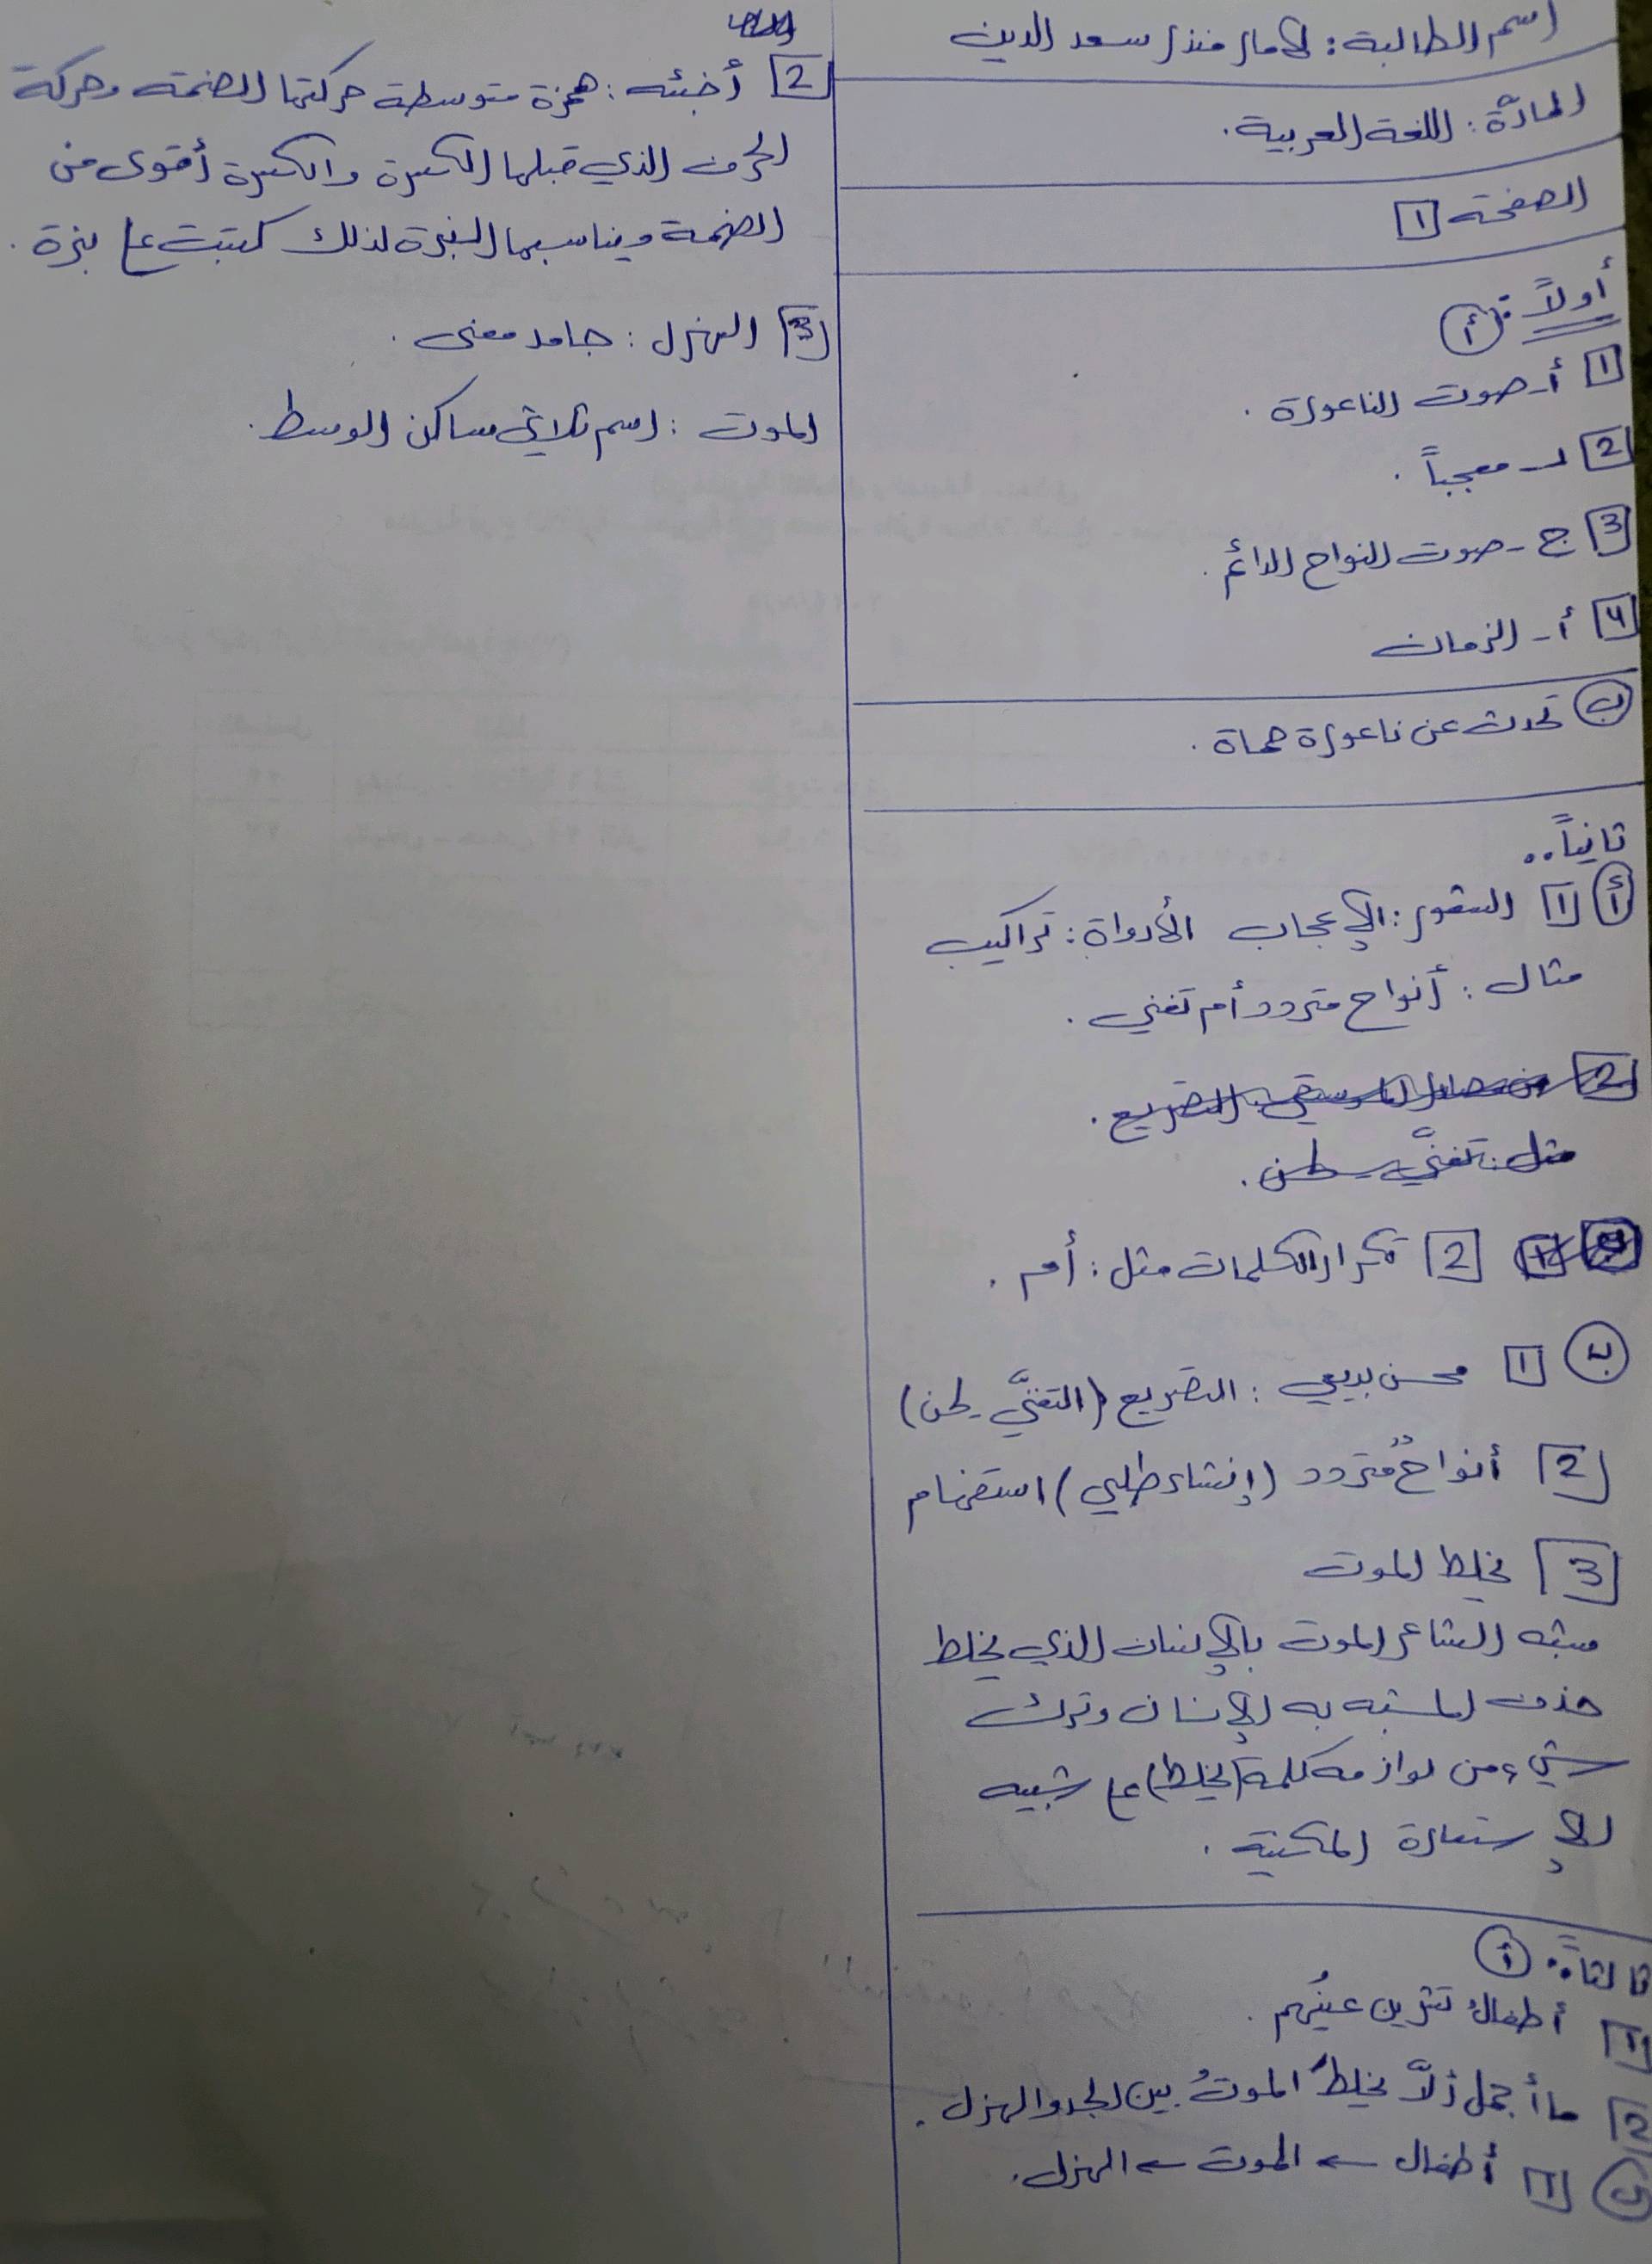 اسم الطالبة: لامار منذر سعد الدين
المادّة: اللغة العربية.
الصفحة 1
أولاً: أ
1 أ- صوت الناعورة.
2 د- معجباً.
3 ج- صوت النواح الدائم.
4 أ- الزمان
ب تحدث عن ناعورة حماة.
ثانياً..
أ 1 الشعور: الإعجاب الأدواة: تراكيب
مثال: أنواح متردد أم تغني.
2 من مصادر الموسيقى: التصريع.
مثل: تغنّي - لحن.
2 تكرار الكلمات مثل: أم.
ب 1 محسن بديعي: التصريع (التغنّي - لحن)
2 أنواحٌ متردد (إنشاء طلبي) استفهام
3 يخلط الموت
شبه الشاعر الموت بالإنسان الذي يخلط
حذف المشبه به الإنسان وترك
شيء من لوازمه كلمة (يخلط) على شبيه
الإستعارة المكنية.
ثالثاً: أ
1 أطفالٌ تثرين عينُهم.
2 ما أجمل ألّا يخلطَ الموتُ بين الجد والهزل.
ب 1 أطفال ← الموت ← الهزل.
2 أخبئه: همزة متوسطة حركتها الضمة وحركة
الحرف الذي قبلها الكسرة والكسرة أقوى من
الضمة ويناسبها النبرة لذلك كتبت على نبرة.
3 الهزل: جامد معنى.
الموت: اسم ثلاثي ساكن الوسط.